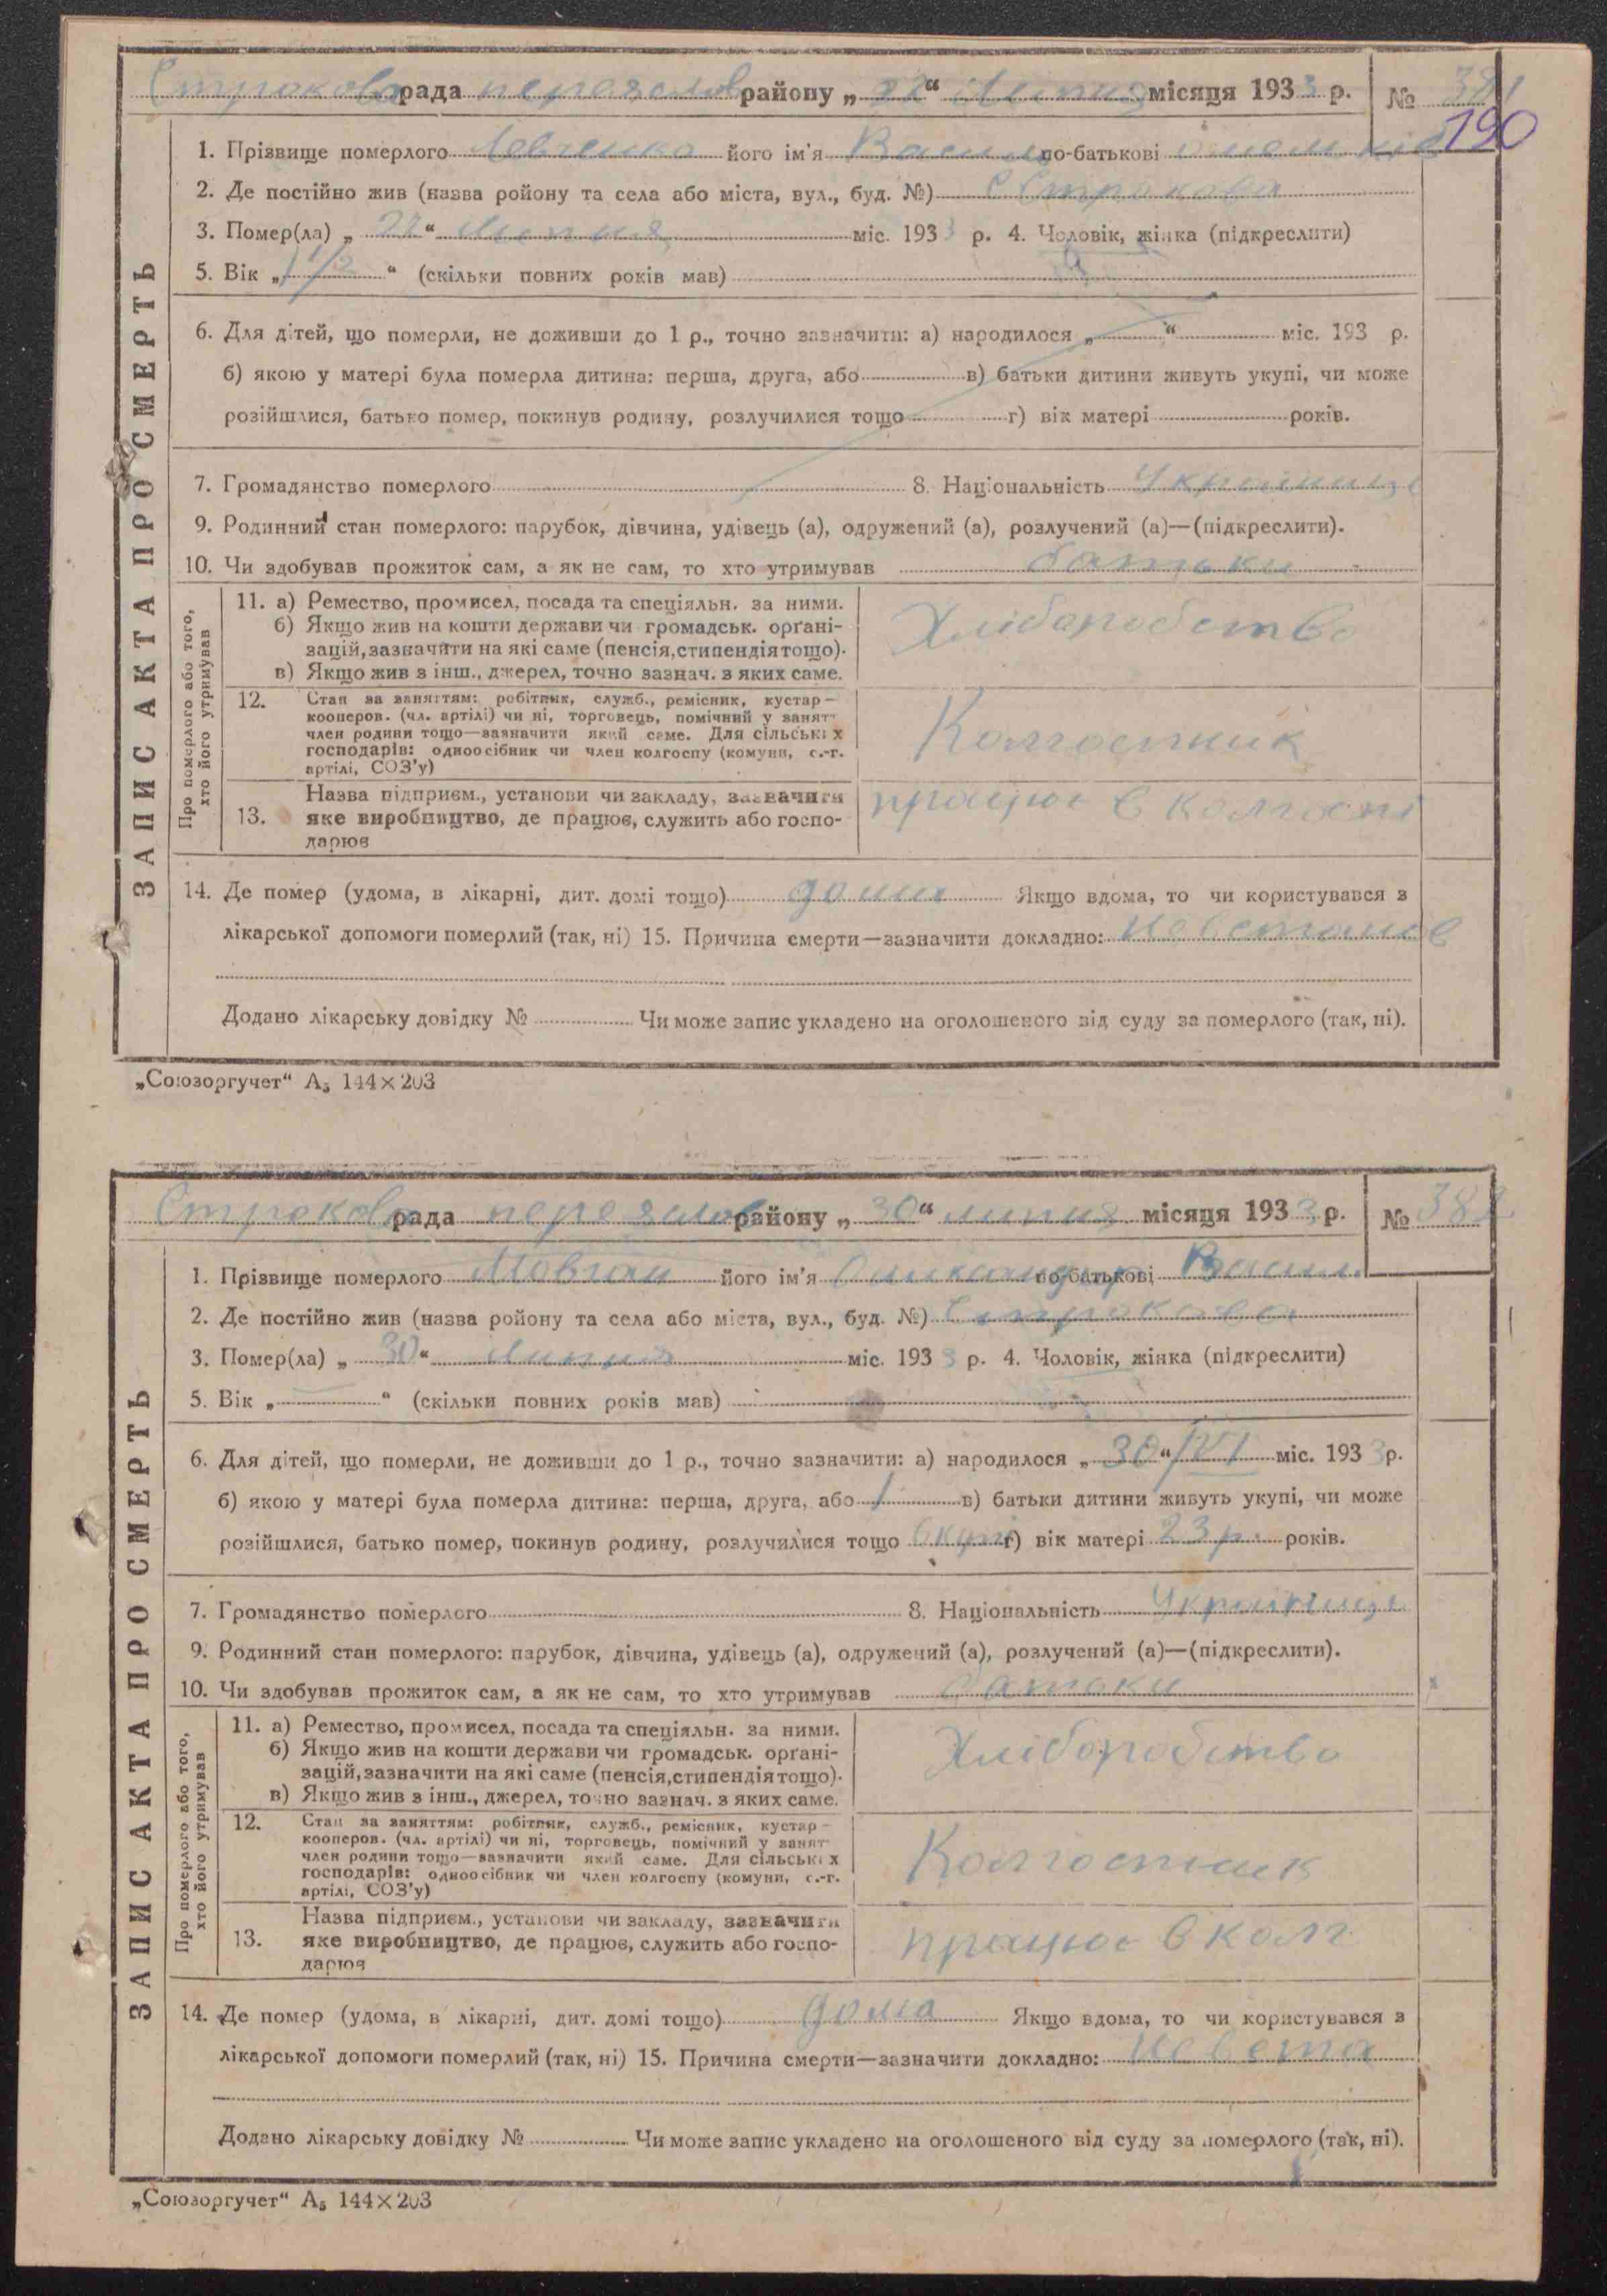 Строковс рада переяслов району „ 22 “ Липня місяця 1933 р. № 381
190
1. Прізвище померлого Левченко його ім'я Василь по-батькові
2. Де постійно жив (назва ройону та села або міста, вул., буд. №) с Строкова
3. Помер(ла) „ 22 “ Липня міс. 1933 р. 4. Чоловік, жінка (підкреслити)
5. Вік „ 1 1/2 “ (скільки повних років мав)
6. Для дітей, що померли, не доживши до 1 р., точно зазначити: а) народилося „ “ міс. 193 р.
б) якою у матері була померла дитина: перша, друга, або в) батьки дитини живуть укупі, чи може
розійшлися, батько помер, покинув родину, розлучилися тощо г) вік матері років.
7. Громадянство померлого 8. Національність Українець
9. Родинний стан померлого: парубок, дівчина, удівець (а), одружений (а), розлучений (а)—(підкреслити).
10. Чи здобував прожиток сам, а як не сам, то хто утримував батьки
ЗАПИС АКТА ПРО СМЕРТЬ
Про померлого або того, хто його утримував
11. а) Ремество, промисел, посада та спеціяльн. за ними.
б) Якщо жив на кошти держави чи громадськ. орґані-
зацій, зазначити на які саме (пенсія, стипендія тощо).
в) Якщо жив з інш., джерел, точно зазнач. з яких саме.
Хліборобство
12. Стан за заняттям: робітник, служб., ремісник, кустар—
кооперов. (чл. артілі) чи ні, торговець, помічний у занят-
член родини тощо—зазначити який саме. Для сільських
господарів: одноосібник чи член колгоспу (комуни, с.-г.
артілі, СОЗ'у)
Колгоспник
13. Назва підприєм., установи чи закладу, зазначити
яке виробництво, де працює, служить або госпо-
дарює
працює в колгоспі
14. Де помер (удома, в лікарні, дит. домі тощо) дома Якщо вдома, то чи користувався з
лікарської допомоги померлий (так, ні) 15. Причина смерти—зазначити докладно:
Додано лікарську довідку № Чи може запис укладено на оголошеного від суду за померлого (так, ні).
„Союзоргучет“ А₅ 144×203
Строковс рада переяслов району „ 30 “ липня місяця 1933 р. № 382
1. Прізвище померлого Мовчан його ім'я Олександр по-батькові Васил
2. Де постійно жив (назва ройону та села або міста, вул., буд. №) Строкова
3. Помер(ла) „ 30 “ Липня міс. 1933 р. 4. Чоловік, жінка (підкреслити)
5. Вік „ — “ (скільки повних років мав)
6. Для дітей, що померли, не доживши до 1 р., точно зазначити: а) народилося „ 30 “ /VI міс. 1933 р.
б) якою у матері була померла дитина: перша, друга, або 1 в) батьки дитини живуть укупі, чи може
розійшлися, батько помер, покинув родину, розлучилися тощо вкупі г) вік матері 23 р. років.
7. Громадянство померлого 8. Національність Українець
9. Родинний стан померлого: парубок, дівчина, удівець (а), одружений (а), розлучений (а)—(підкреслити).
10. Чи здобував прожиток сам, а як не сам, то хто утримував батьки
ЗАПИС АКТА ПРО СМЕРТЬ
Про померлого або того, хто його утримував
11. а) Ремество, промисел, посада та спеціяльн. за ними.
б) Якщо жив на кошти держави чи громадськ. орґані-
зацій, зазначити на які саме (пенсія, стипендія тощо).
в) Якщо жив з інш., джерел, точно зазнач. з яких саме.
Хліборобство
12. Стан за заняттям: робітник, служб., ремісник, кустар—
кооперов. (чл. артілі) чи ні, торговець, помічний у занят-
член родини тощо—зазначити який саме. Для сільських
господарів: одноосібник чи член колгоспу (комуни, с.-г.
артілі, СОЗ'у)
Колгоспник
13. Назва підприєм., установи чи закладу, зазначити
яке виробництво, де працює, служить або госпо-
дарює
працює в колг
14. Де помер (удома, в лікарні, дит. домі тощо) дома Якщо вдома, то чи користувався з
лікарської допомоги померлий (так, ні) 15. Причина смерти—зазначити докладно:
Додано лікарську довідку № Чи може запис укладено на оголошеного від суду за померлого (так, ні).
„Союзоргучет“ А₅ 144×203